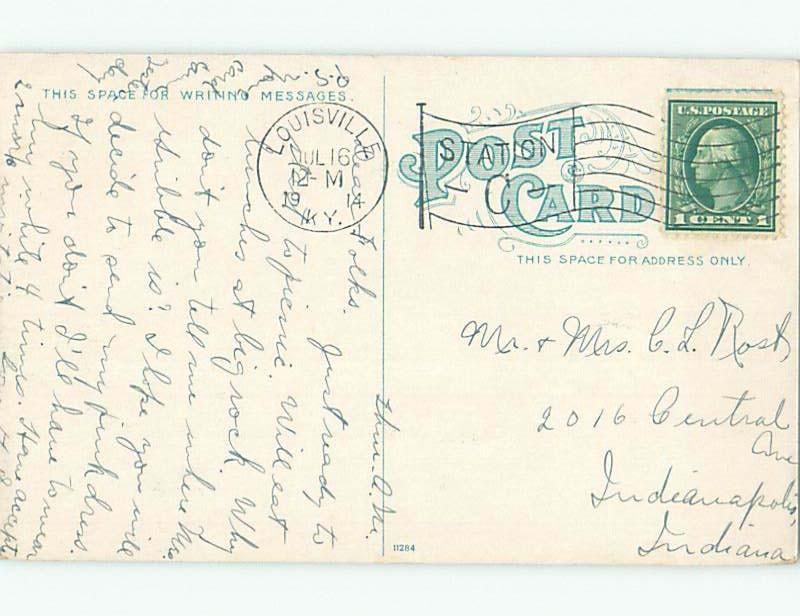 THIS SPACE FOR WRITING MESSAGES.
POST CARD
THIS SPACE FOR ADDRESS ONLY.
U.S. POSTAGE
1 CENT 1
LOUISVILLE
JUL 16
12-M
1914
KY.
STATION
C
Mr. & Mrs. C. L. Rost
2016 Central
Ave
Indianapolis,
Indiana
Thu. A.M.
Dear Folks. Just ready to
to picnic. Will eat
lunches at big rock. Why
don't you tell me where Mo.
is? I hope you will
decide to send my pink dress.
If you don't I'll have to wear
my white 4 times. Have accept
11284